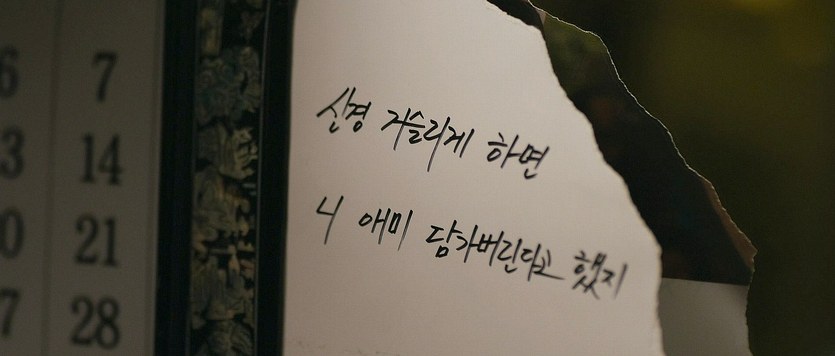 6 7
3 14
0 21
7 28
신경 거슬리게 하면
니 애미 담가버린다고 했지